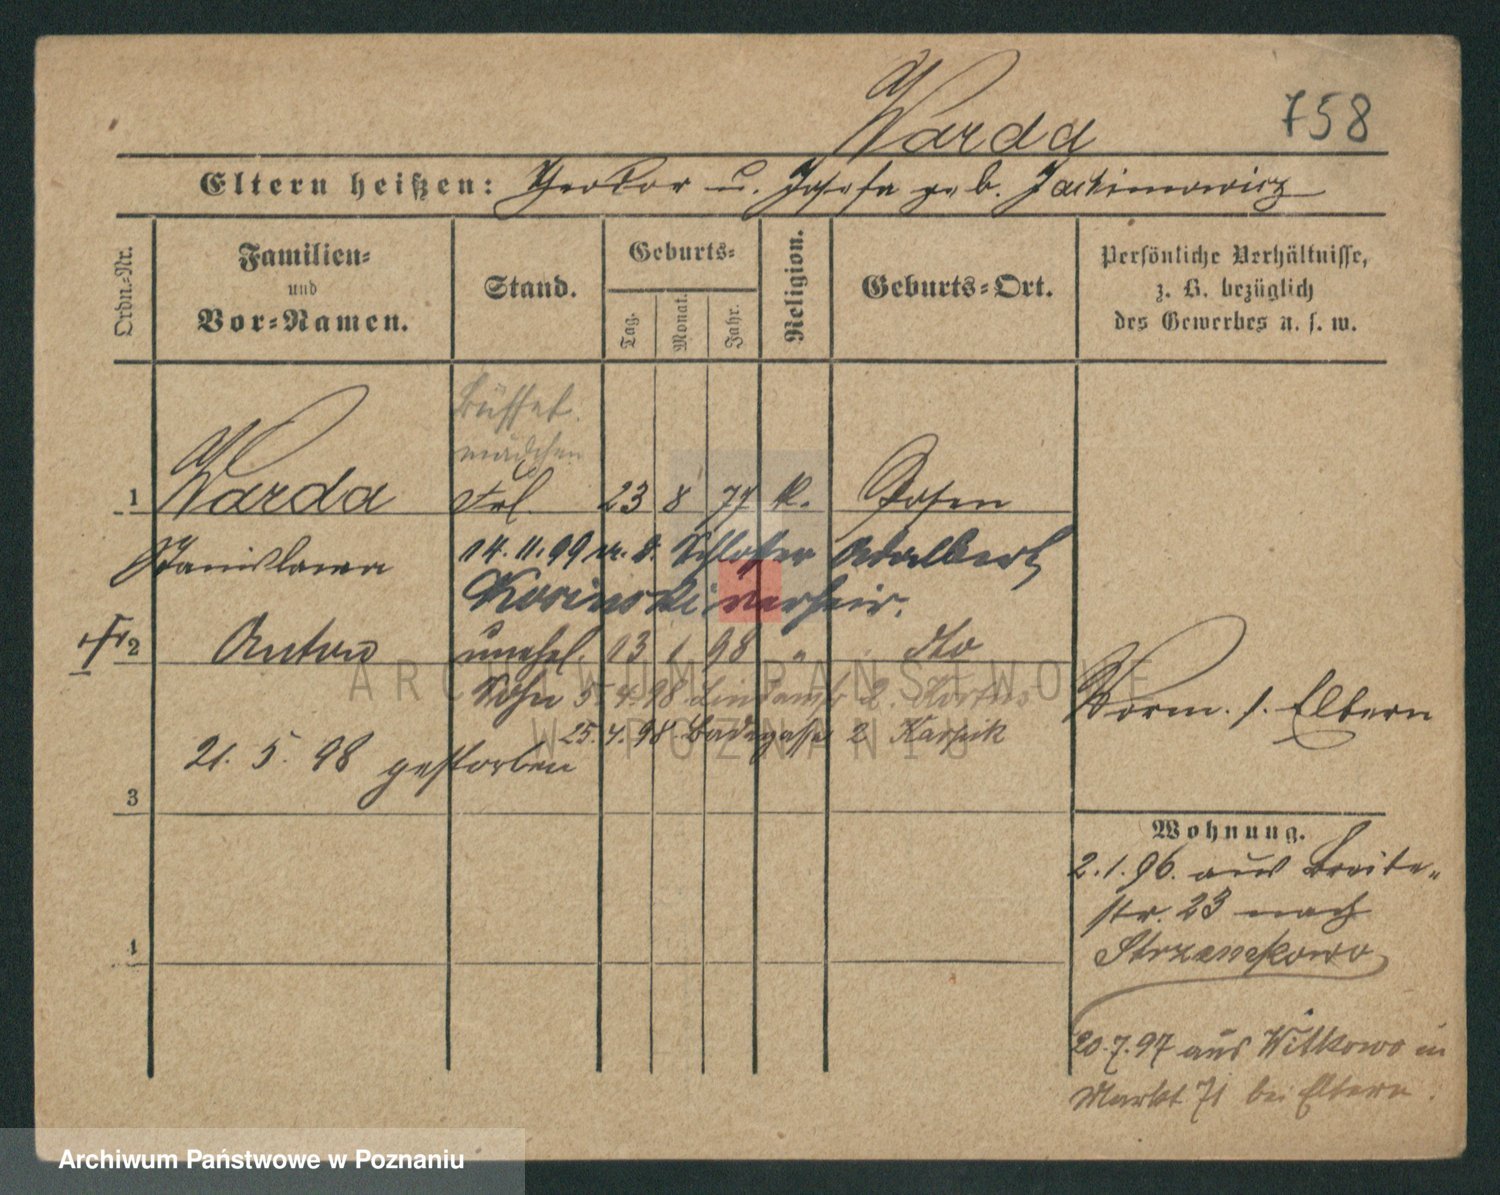 Warda 758
Eltern heißen: Theodor u. Josefa geb. Jachimowicz
Ordn.-Nr.
Familien-
und
Vor-Namen.
Stand.
Geburts-
Tag.
Monat.
Jahr.
Religion.
Geburts-Ort.
Persönliche Verhältnisse,
z. B. bezüglich
des Gewerbes u. s. w.
Büffet
mädchen
1 Warda Frl. 23 8 77 k. Posen
Stanislawa 14.11.99 m. d. Schlosser Adalbert
verheir.
2 Anton unehel. 13 1 98 " dto
Sohn 5.4.98 2.
Vorm. s. Eltern
25.4.98 Badegasse 2 Karpik
21. 5. 98 gestorben
3
Wohnung.
2.1.96. aus Breite-
str. 23 nach
4
20.7.97 aus Witkowo in
Markt 71 bei Eltern.
ARCHIWUM PAŃSTWOWE
W POZNANIU
Archiwum Państwowe w Poznaniu